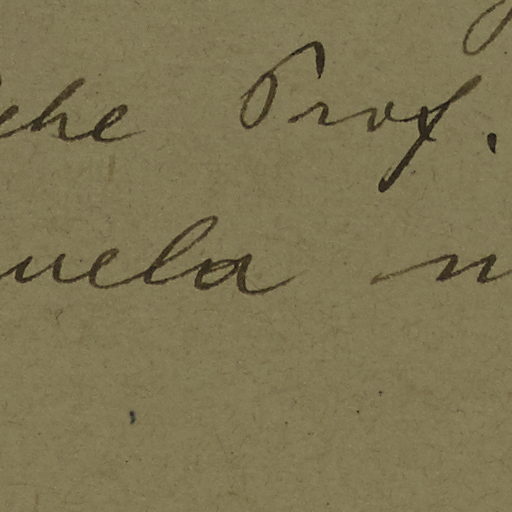 che Prof.
uela n